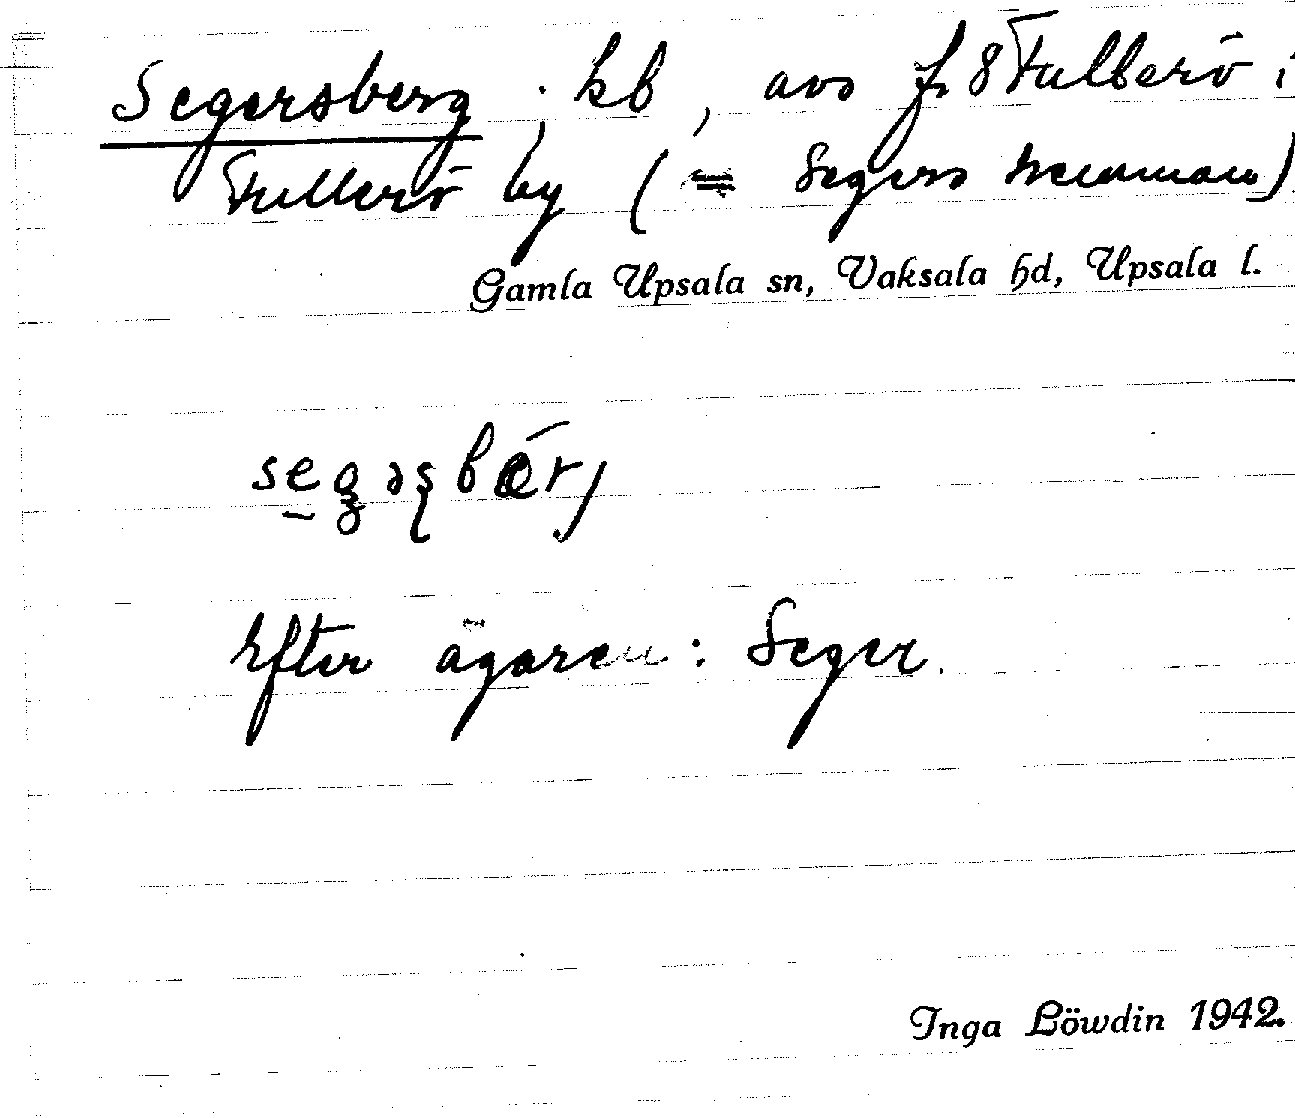 Segersberg, kb, avs fr 8 Fullerö i
Fullerö by (= Segers hemman)
Gamla Upsala sn, Vaksala hd, Upsala l.
Efter ägaren: Seger.
Inga Löwdin 1942.